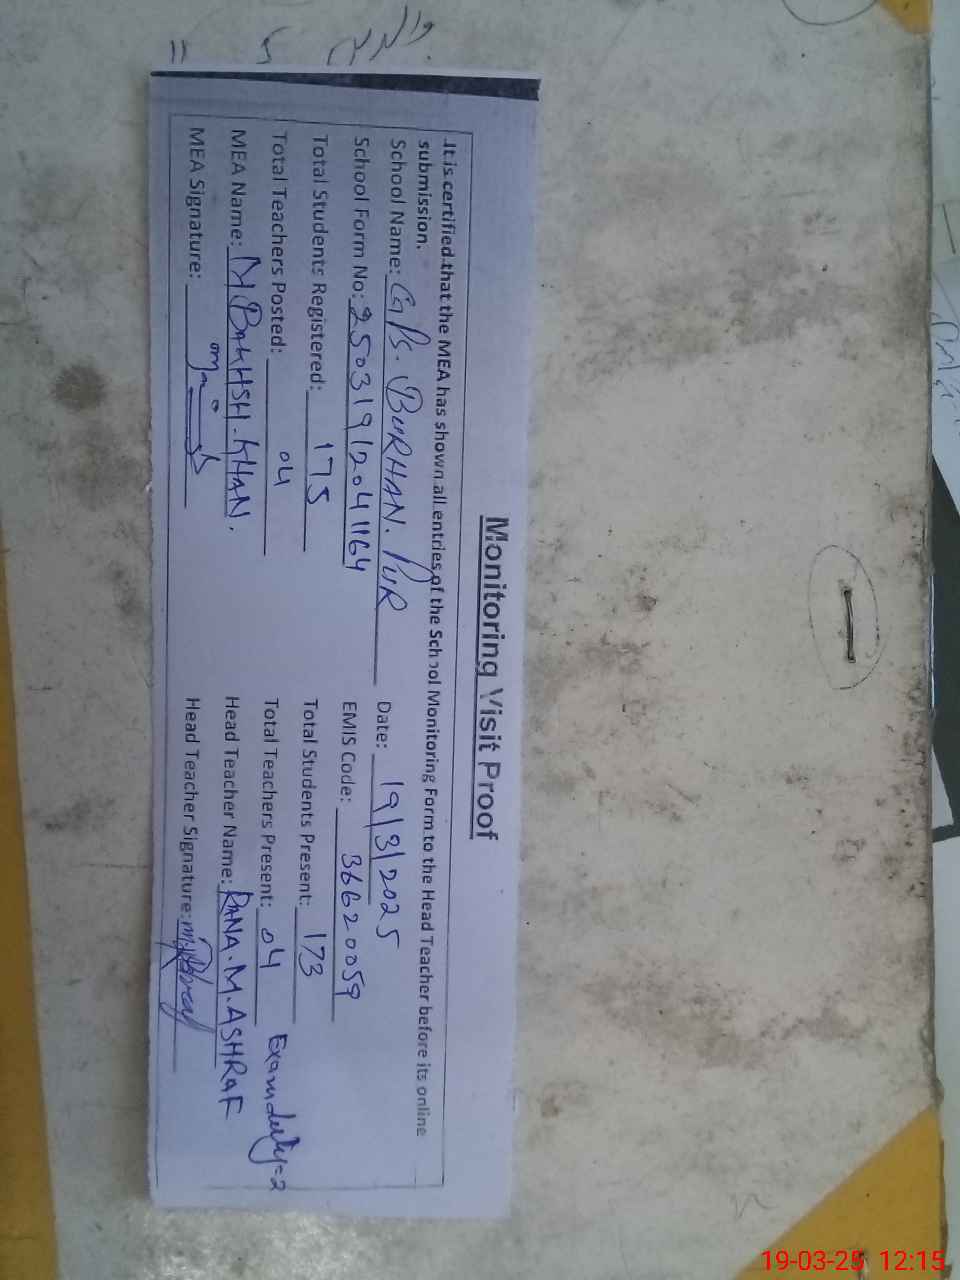 Monitoring Visit Proof
It is certified that the MEA has shown all entries of the School Monitoring Form to the Head Teacher before its online
submission.
School Name: GPS. BURHAN. PUR Date: 19/3/2025
School Form No: 25031912041164 EMIS Code: 36620059
Total Students Registered: 175 Total Students Present: 173
Total Teachers Posted: 04 Total Teachers Present: 04 Exam duty=2
MEA Name: M BAKHSH. KHAN. Head Teacher Name: RANA. M. ASHRAF
MEA Signature: Head Teacher Signature:
19-03-25 12:15